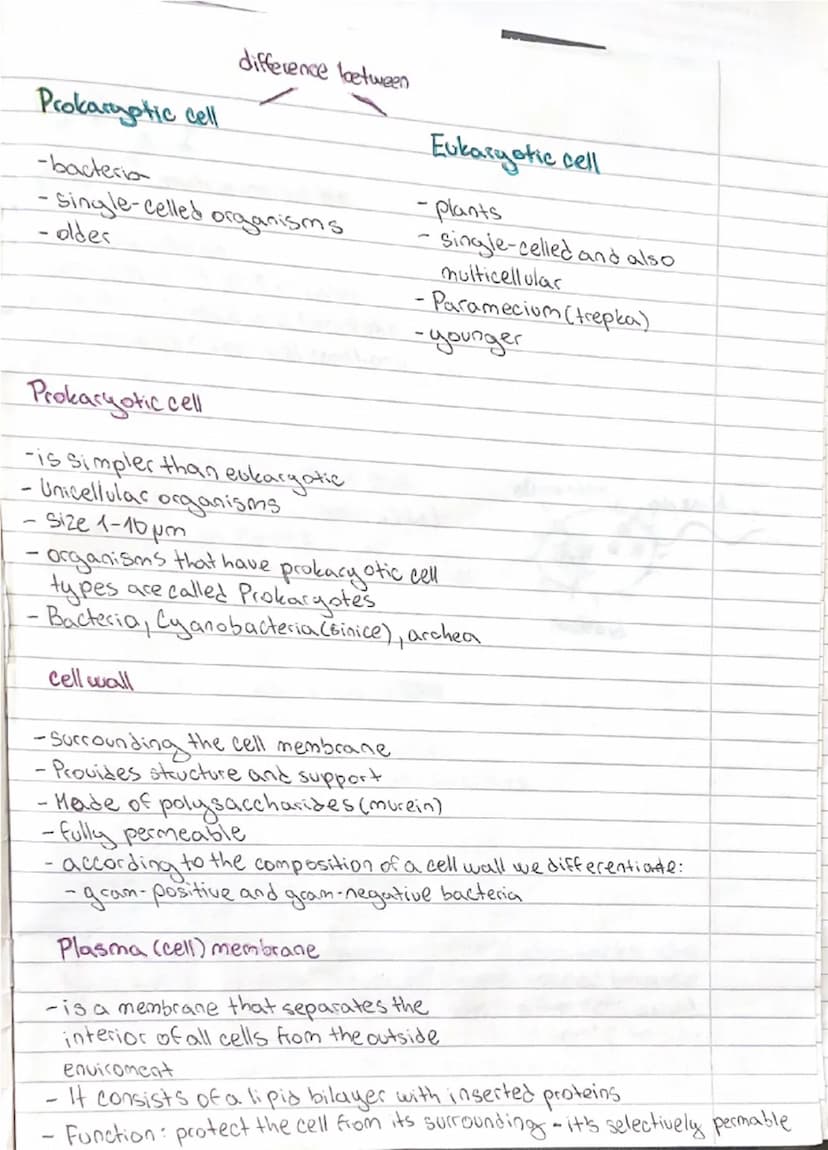 difference between
Prokaryotic cell
-bacteria
- single-celled organisms
- older
Eukaryotic cell
- plants
- single-celled and also
multicellular
- Paramecium (trepka)
- younger
Prokaryotic cell
-is simpler than eukaryotic
- Unicellular organisms
- size 1-10 μm
- organisms that have prokaryotic cell
types are called Prokaryotes
- Bacteria, Cyanobacteria (sinice), archea
cell wall
- Surrounding the cell membrane
- Provides structure and support
- Made of polysaccharides (murein)
- fully permeable
- according to the composition of a cell wall we differentiate:
- gram-positive and gram-negative bacteria
Plasma (cell) membrane
- is a membrane that separates the
interior of all cells from the outside
enviroment
- It consists of a lipid bilayer with inserted proteins
- Function: protect the cell from its surrounding - it's selectively permable